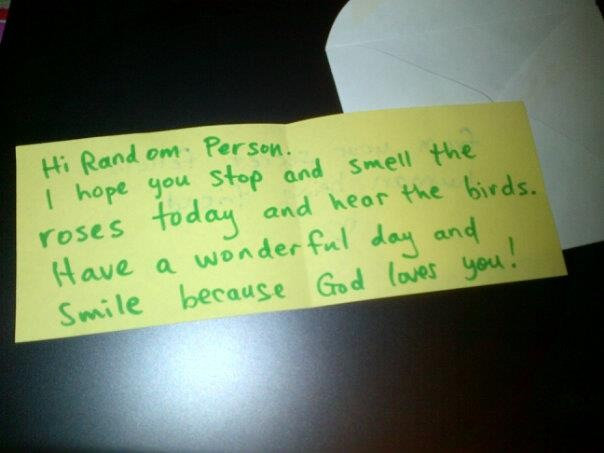 Hi Random Person.
I hope you stop and smell the
roses today and hear the birds.
Have a wonderful day and
Smile because God loves you!